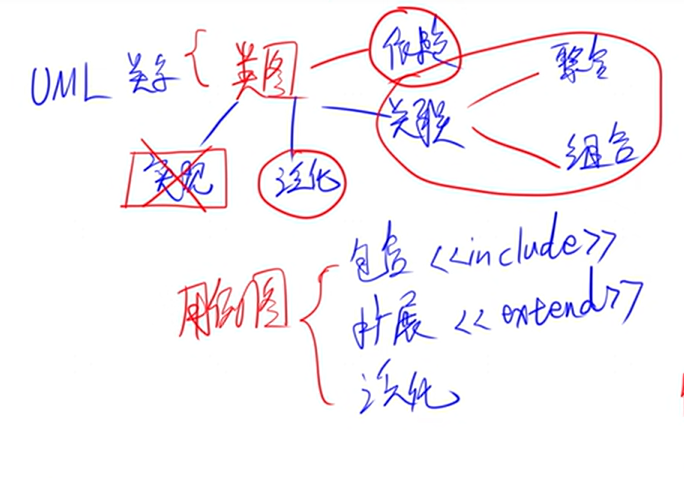 UML 关系 类图
依赖
关联
聚合
组合
实现
泛化
用例图
包含 <<include>>
扩展 <<extend>>
泛化